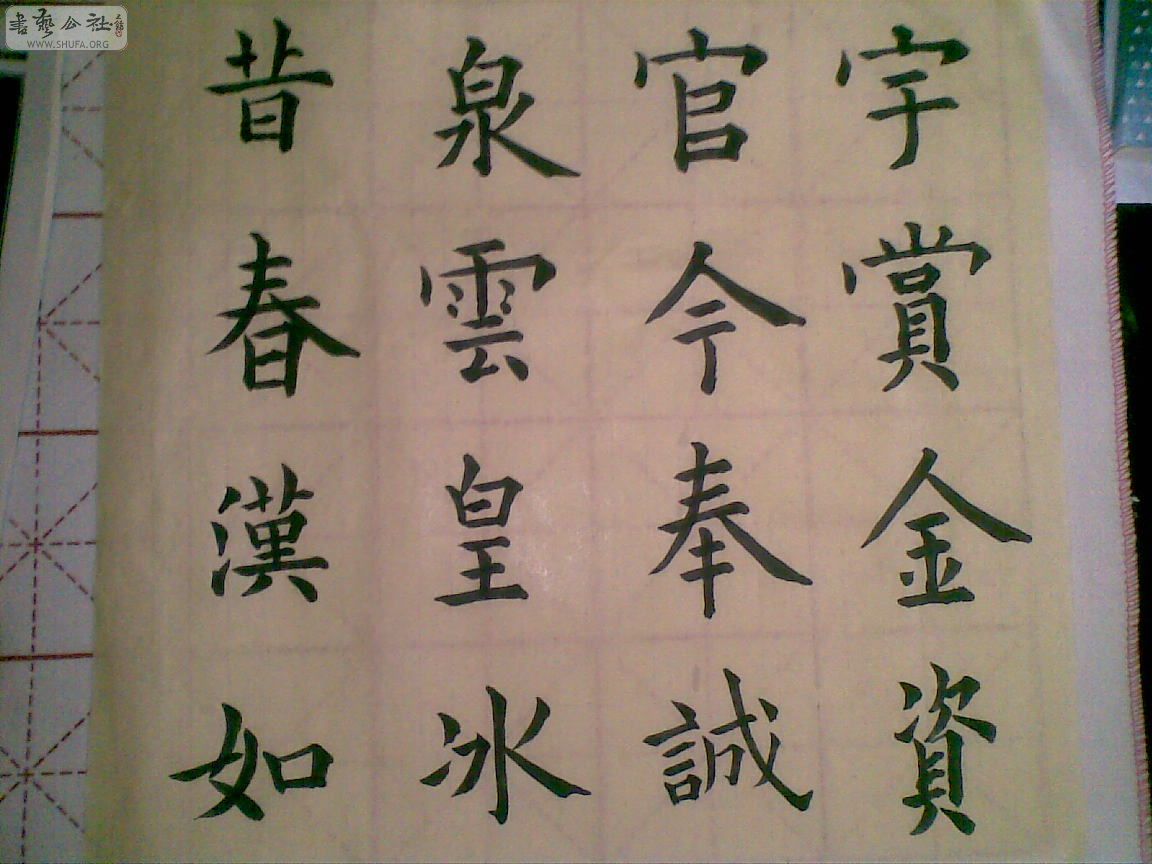 宇賞金資
官今奉誠
泉雲皇冰
昔春漢如
書藝公社
WWW.SHUFA.ORG